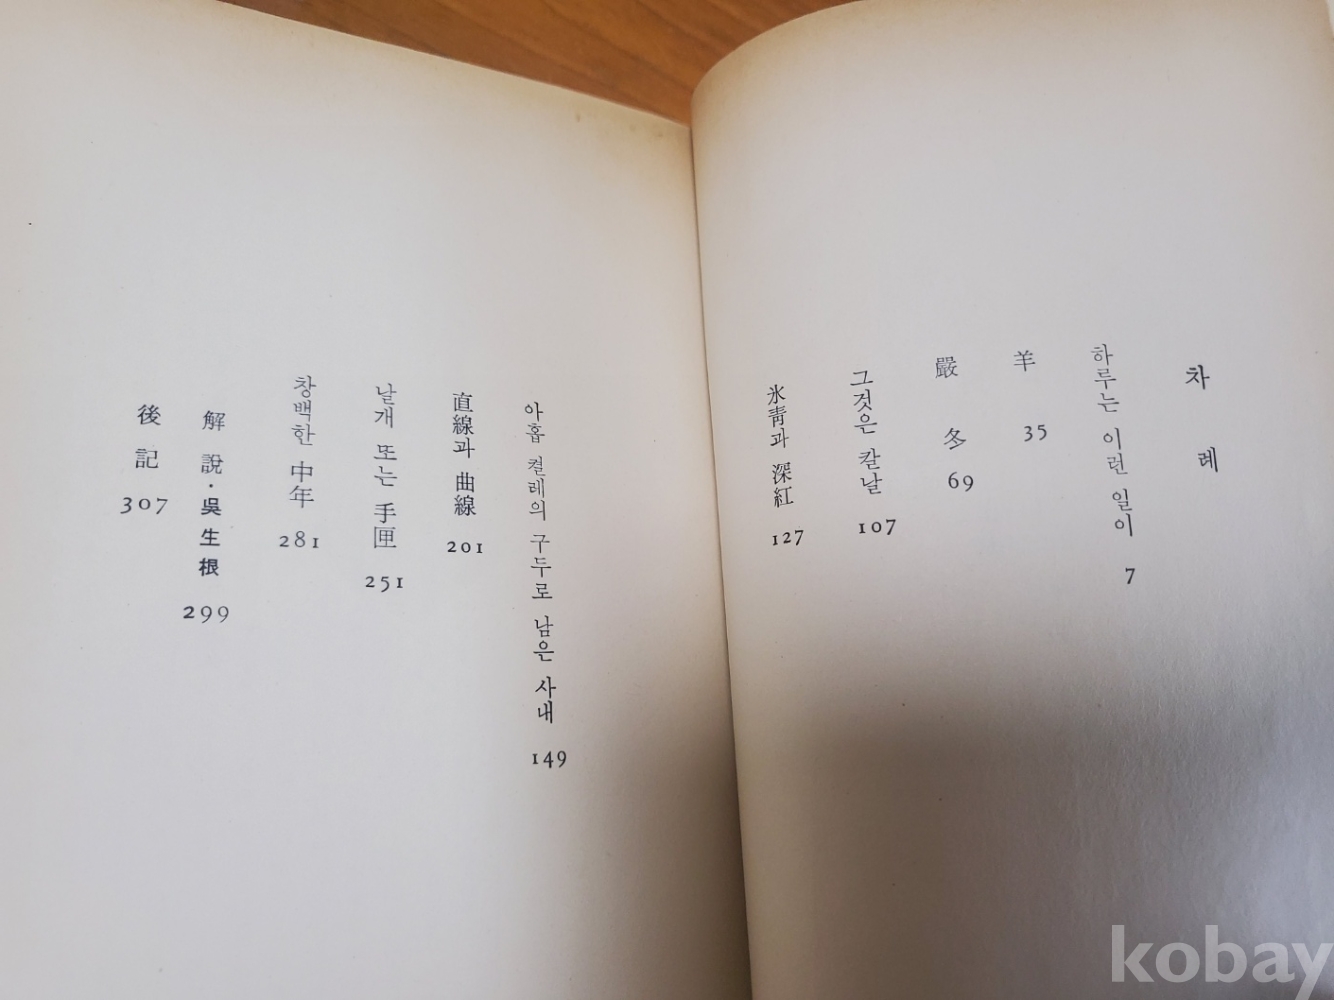 차례
하루는 이런 일이 7
羊 35
嚴冬 69
그것은 칼날 107
氷靑과 深紅 127
아홉 켤레의 구두로 남은 사내 149
直線과 曲線 201
날개 또는 手匣 251
창백한 中年 281
解說·吳生根 299
後記 307
kobay